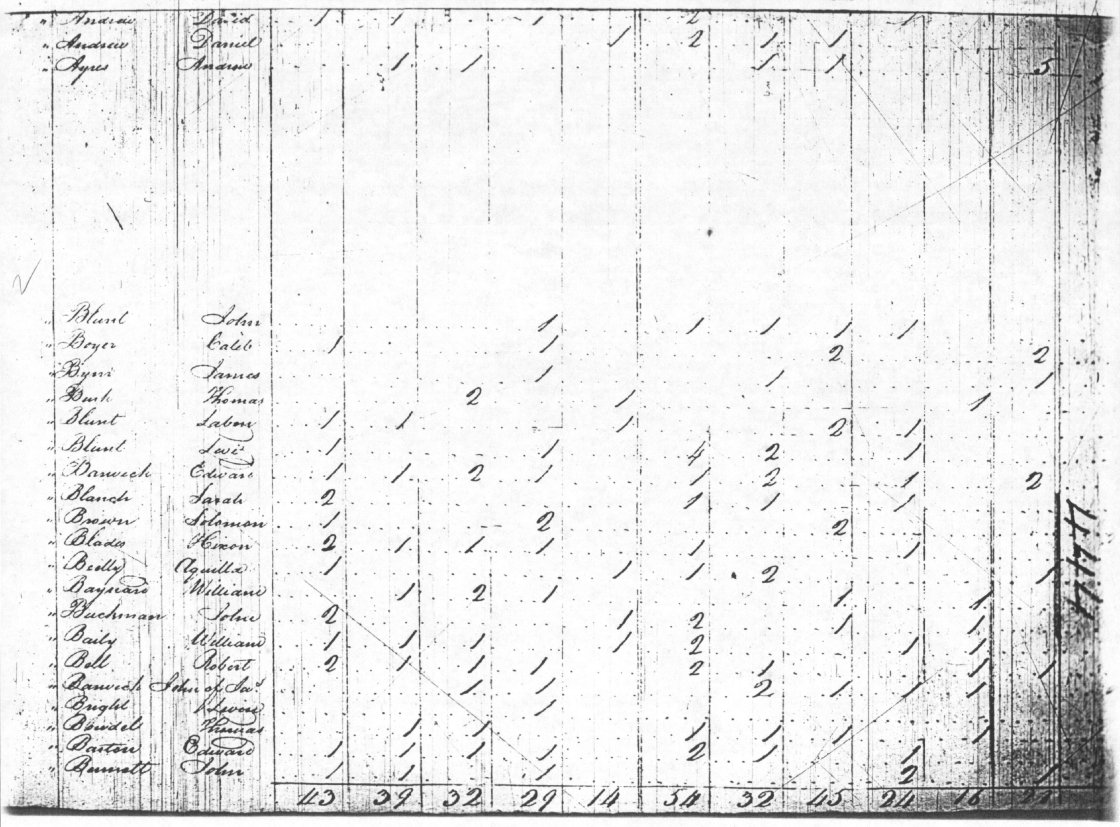 " Andrew David 1 1 1 2 1
" Andrew Daniel 1 2 1 1
" Ayres Andrew 1 1 1 1 5
" Blunt John 1 1 1 1 1
" Boyer Caleb 1 1 2 2
" James 1 1 1
" Bush Thomas 2 1 1
" Blunt Laben 1 1 1 2 1
" Blunt Levi 1 1 4 2 1
" Barwick Edward 1 1 2 1 1 2 1 2
" Blanch Sarah 2 1 1 1
" Brown Solomon 1 2 2
" Blades Hixon 2 1 1 1 1 1
" Aquilla 1 1 1 2 1
" Baynard William 1 2 1 1 1
" Buchman John 2 1 2 1 1
" Baily William 1 1 1 1 2 1 1
" Bell Robert 2 1 1 1 2 1 1 1
" Barwick John of Jas 1 1 2 1 1 1
" Bright 1
" Bowdel Thomas 1 1 1 1 1 1
" Barton Edward 1 1 1 1 2 1 1
" Bennett John 1 1 1 2 1
43 39 32 29 14 54 32 45 24 16
447